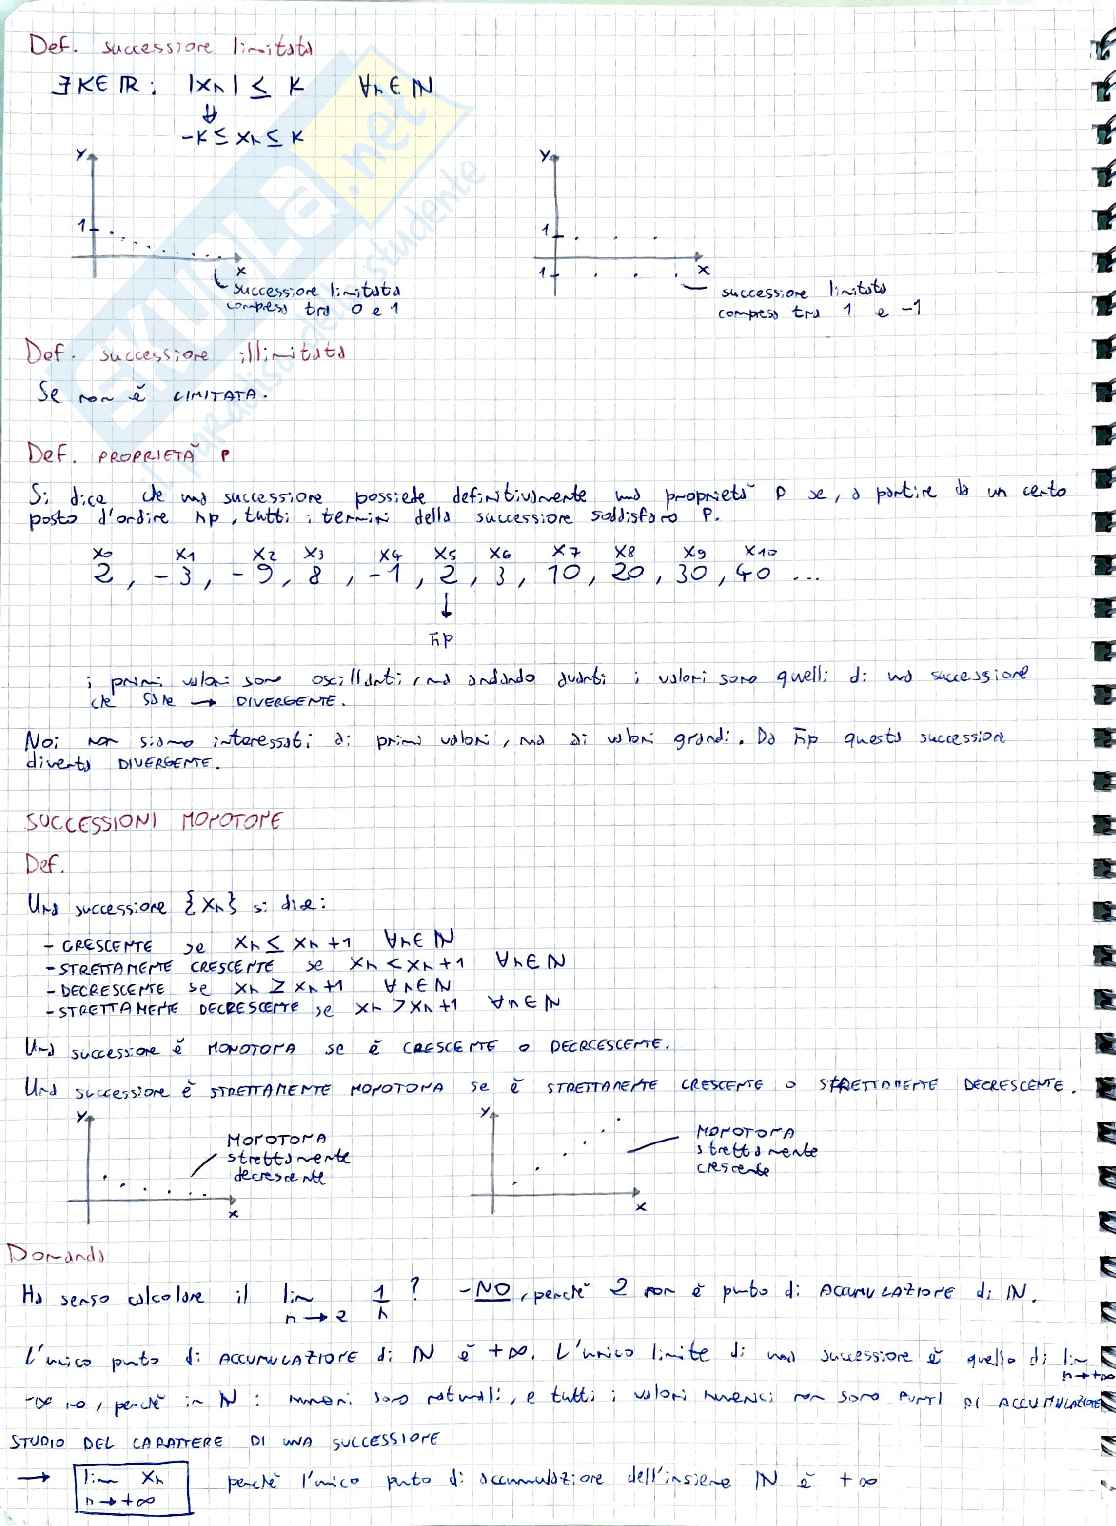 Def. successione limitata
∃K∈ℝ: |xn| ≤ K ∀n∈ℕ
⇓
-K ≤ xn ≤ K
y
1
x
successione limitata
compresa tra 0 e 1
y
1
1
x
successione limitata
compresa tra 1 e -1
Def. successione illimitata
Se non è LIMITATA.
Def. PROPRIETÀ P
Si dice che una successione possiede definitivamente una proprietà P se, a partire da un certo
posto d'ordine n̄p, tutti i termini della successione soddisfano P.
x0 x1 x2 x3 x4 x5 x6 x7 x8 x9 x10
2, -3, -9, 8, -1, 2, 3, 10, 20, 30, 40 ...
↓
n̄p
i primi valori sono oscillanti, ma andando avanti i valori sono quelli di una successione
che sale → DIVERGENTE.
Noi non siamo interessati ai primi valori, ma ai valori grandi. Da n̄p questa successione
diventa DIVERGENTE.
SUCCESSIONI MONOTONE
Def.
Una successione {xn} si dice:
- CRESCENTE se xn ≤ xn+1 ∀n∈ℕ
- STRETTAMENTE CRESCENTE se xn < xn+1 ∀n∈ℕ
- DECRESCENTE se xn ≥ xn+1 ∀n∈ℕ
- STRETTAMENTE DECRESCENTE se xn > xn+1 ∀n∈ℕ
Una successione è MONOTONA se è CRESCENTE o DECRCESCENTE.
Una successione è STRETTAMENTE MONOTONA se è STRETTAMENTE CRESCENTE o STRETTAMENTE DECRESCENTE.
y
MONOTONA
strettamente
decrescente
x
y
MONOTONA
strettamente
crescente
x
Domanda
Ha senso calcolare il lim n→2 1/n ? - NO, perchè 2 non è punto di ACCUMULAZIONE di ℕ.
L'unico punto di ACCUMULAZIONE di ℕ è +∞. L'unico limite di una successione è quello di lim n→+∞
-∞ no, perchè in ℕ i numeri sono naturali, e tutti i valori numerici non sono PUNTI DI ACCUMULAZIONE
STUDIO DEL CARATTERE DI UNA SUCCESSIONE
→ lim xn n→+∞ perchè l'unico punto di accumulazione dell'insieme ℕ è +∞
SKUOLA.net
il paradiso dello studente